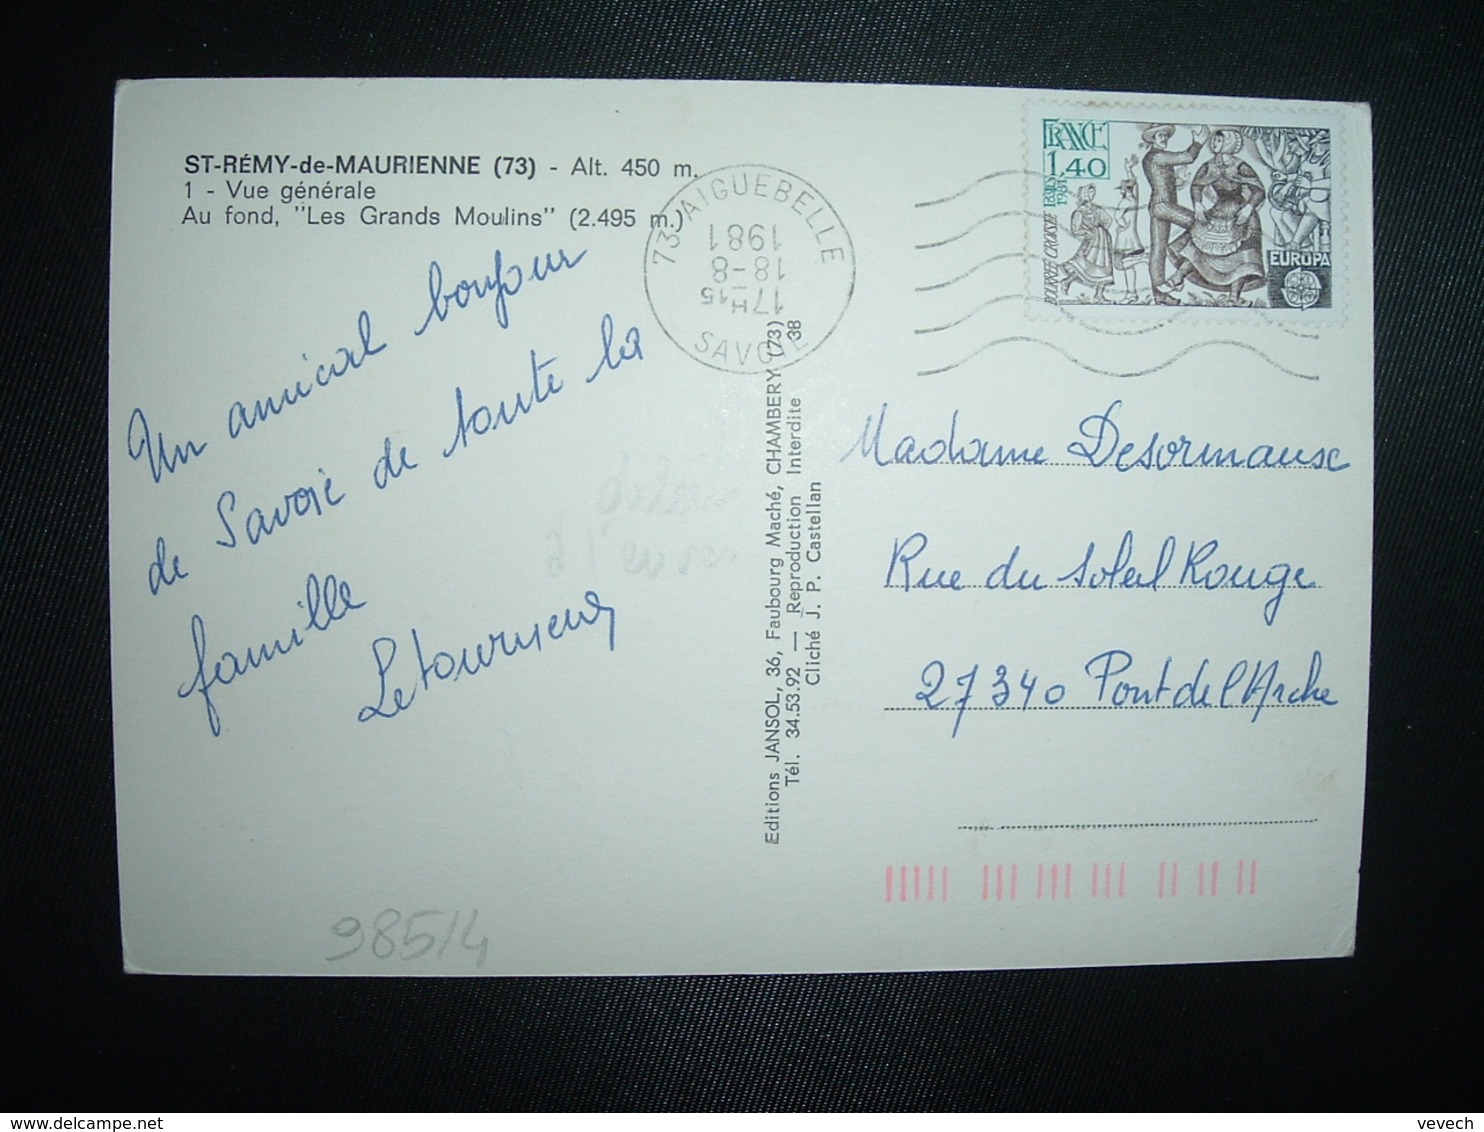 ST-RÉMY-de-MAURIENNE (73) - Alt. 450 m.
1 - Vue générale
Au fond, "Les Grands Moulins" (2.495 m.)
Un amical bonjour
de Savoie de toute la
famille
Letourneur
985/4
73 AIGUEBELLE
17H15
18-8
1981
SAVOIE
Editions JANSOL, 36, Faubourg Maché, CHAMBERY (73)
Tél. 34.53.92 — Reproduction Interdite 38
Cliché J. P. Castellan
FRANCE
1,40
POSTES
1981
BOURRÉE CROISÉE
EUROPA
Madame Desormaux
Rue du Soleil Rouge
27340 Pont de l'Arche
delcampe.net
vevech